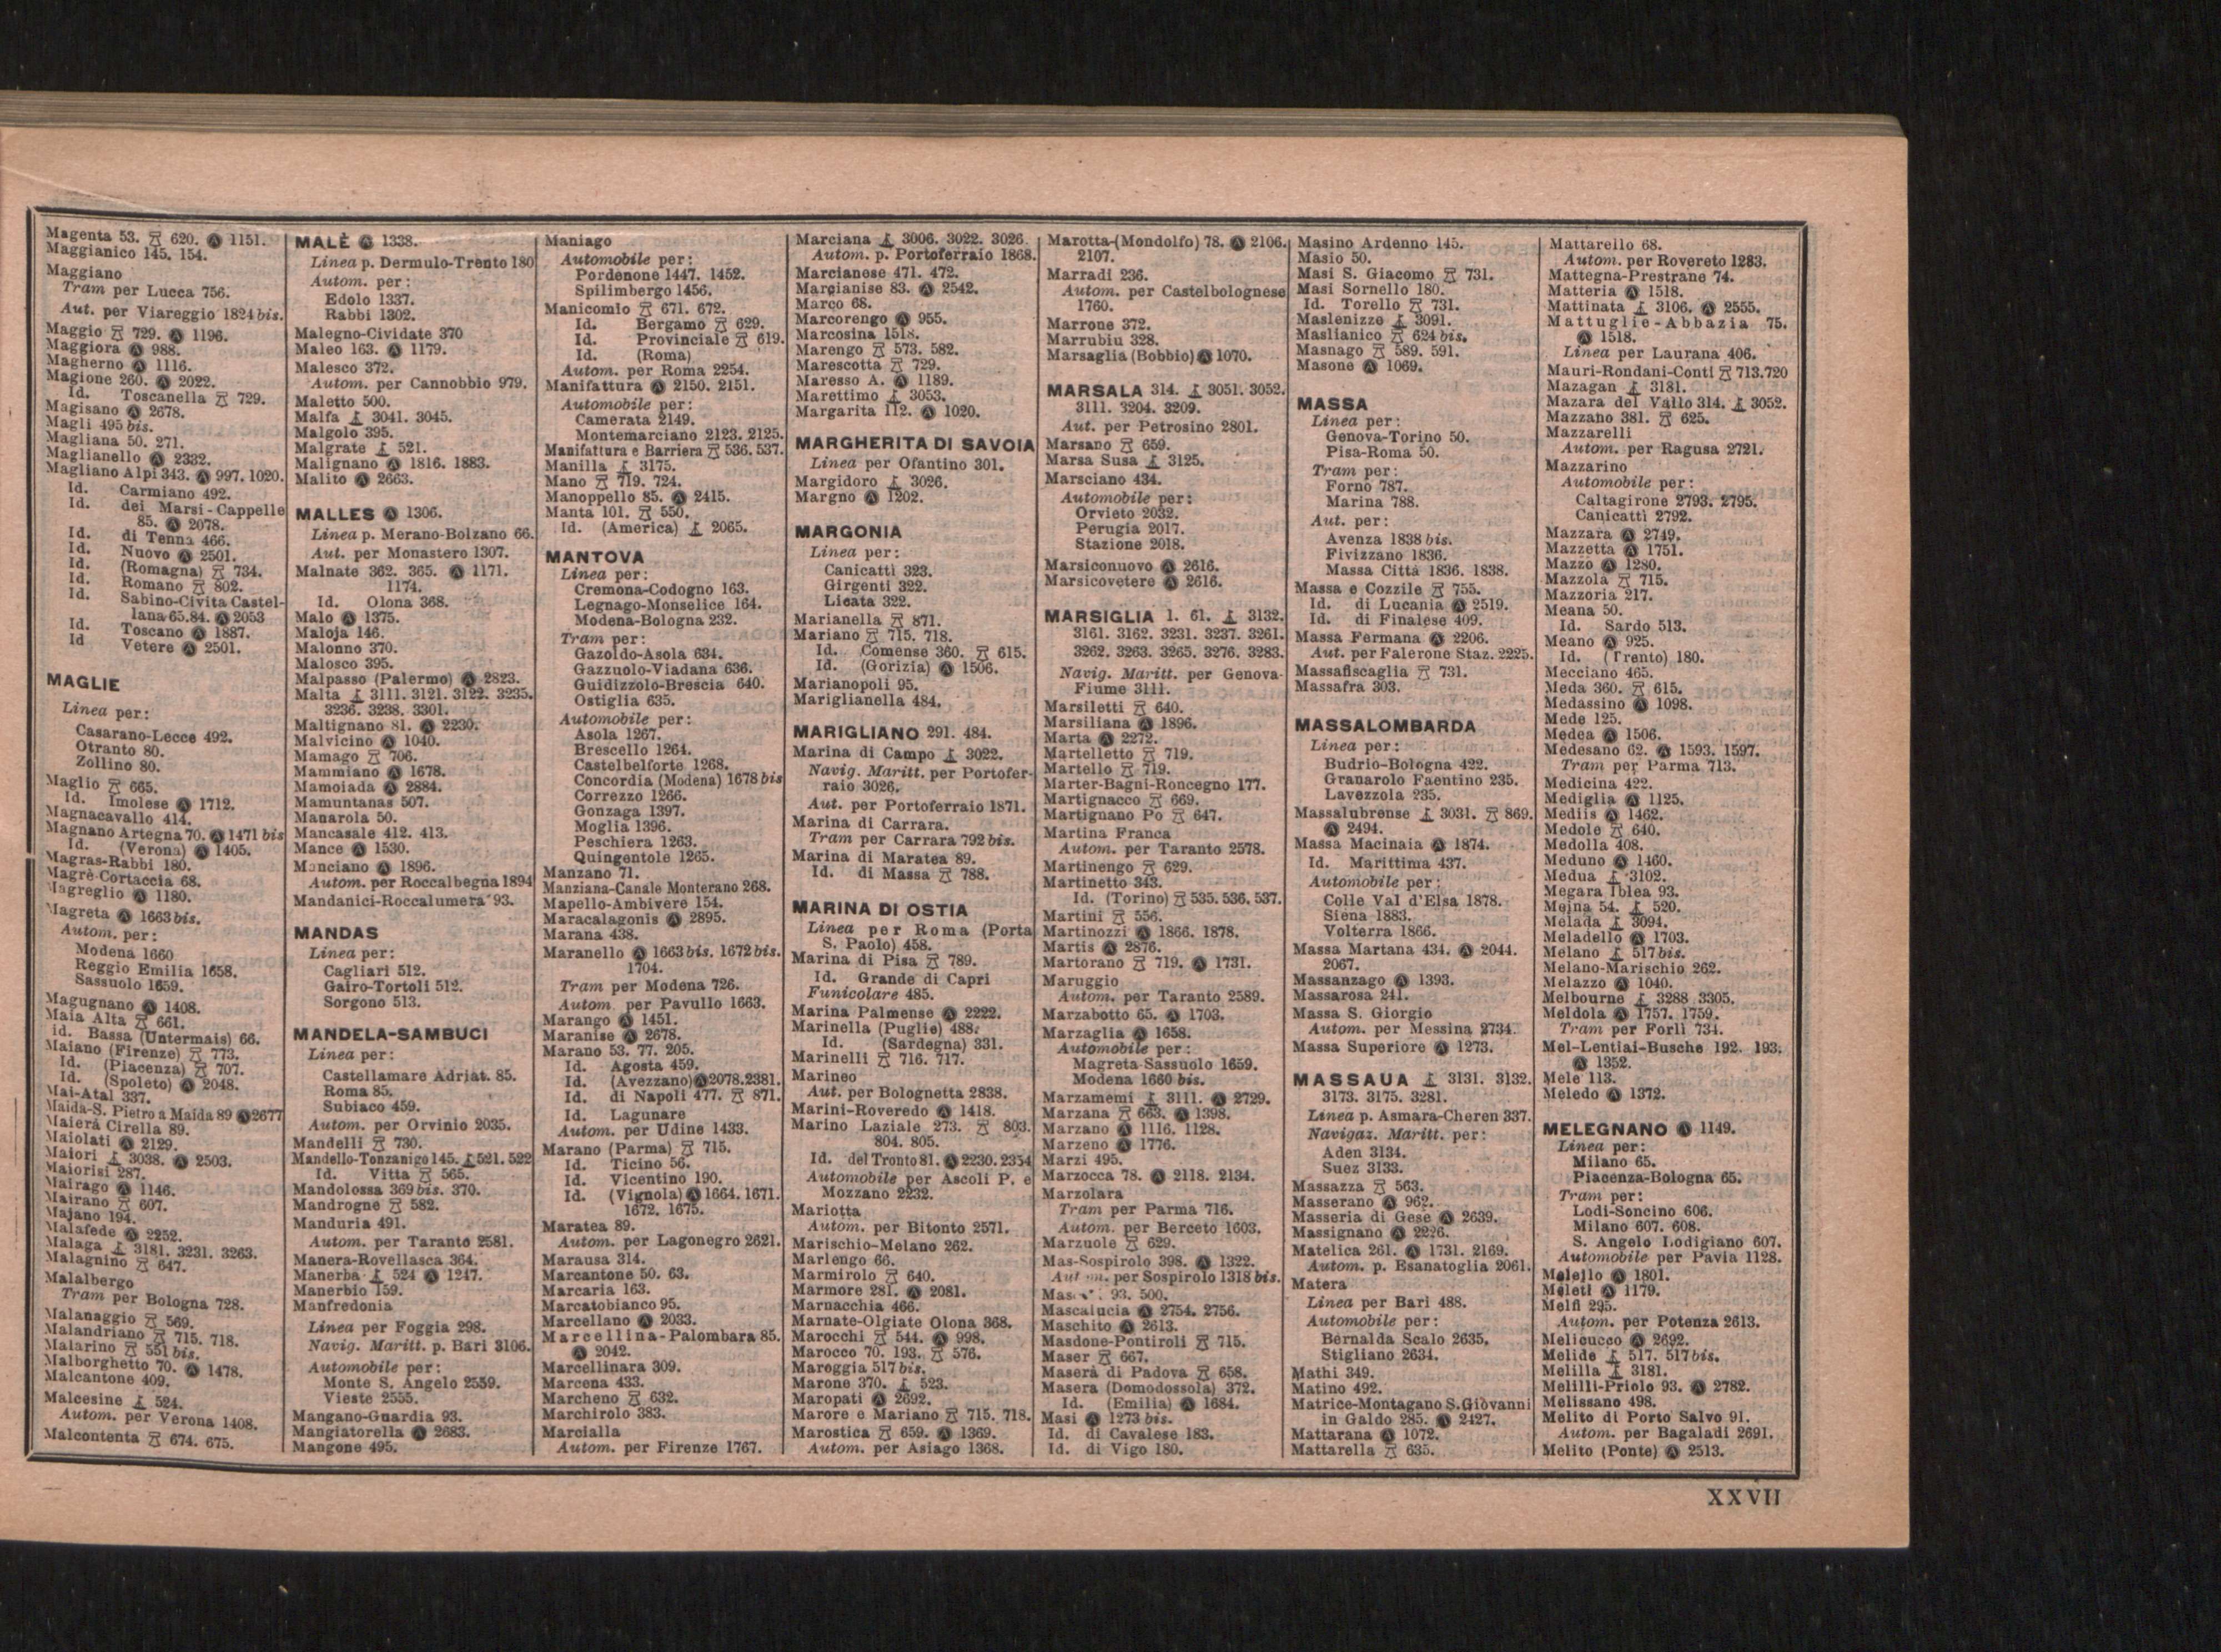 Magenta 53. 620. 1151.
Maggianico 145. 154.
Maggiano
Tram per Lucca 756.
Aut. per Viareggio 1824 bis.
Maggio 729. 1196.
Maggiora 988.
Magherno 1116.
Magione 260. 2022.
Id. Toscanella 729.
Magisano 2678.
Magli 495 bis.
Magliana 50. 271.
Maglianello 2332.
Magliano Alpi 343. 997. 1020.
Id. Carmiano 492.
Id. dei Marsi-Cappelle
85. 2078.
Id. di Tenna 466.
Id. Nuovo 2501.
Id. (Romagna) 734.
Id. Romano 802.
Id. Sabino-Civita Castel-
lana 65.84. 2053
Id. Toscano 1887.
Id Vetere 2501.
MAGLIE
Linea per:
Casarano-Lecce 492.
Otranto 80.
Zollino 80.
Maglio 665.
Id. Imolese 1712.
Magnacavallo 414.
Magnano Artegna 70. 1471 bis
Id. (Verona) 1405.
Magras-Rabbi 180.
Magrè-Cortaccia 68.
Magreglio 1180.
Magreta 1663 bis.
Autom. per:
Modena 1660
Reggio Emilia 1658.
Sassuolo 1659.
Magugnano 1408.
Maia Alta 661.
id. Bassa (Untermais) 66.
Maiano (Firenze) 773.
Id. (Piacenza) 707.
Id. (Spoleto) 2048.
Mai-Atal 337.
Maida-S. Pietro a Maida 89 2677
Maierà Cirella 89.
Maiolati 2129.
Maiori 3038. 2503.
Maiorisi 287.
Mairago 1146.
Mairano 607.
Majano 194.
Malafede 2252.
Malaga 3181. 3231. 3263.
Malagnino 647.
Malalbergo
Tram per Bologna 728.
Malanaggio 569.
Malandriano 715. 718.
Malarino 551 bis.
Malborghetto 70. 1478.
Malcantone 409.
Malcesine 524.
Autom. per Verona 1408.
Malcontenta 674. 675.
MALÈ 1338.
Linea p. Dermulo-Trento 180
Autom. per:
Edolo 1337.
Rabbi 1302.
Malegno-Cividate 370
Maleo 163. 1179.
Malesco 372.
Autom. per Cannobbio 979.
Maletto 500.
Malfa 3041. 3045.
Malgolo 395.
Malgrate 521.
Malignano 1816. 1883.
Malito 2663.
MALLES 1306.
Linea p. Merano-Bolzano 66.
Aut. per Monastero 1307.
Malnate 362. 365. 1171.
1174.
Id. Olona 368.
Malo 1375.
Maloja 146.
Malonno 370.
Malosco 395.
Malpasso (Palermo) 2823.
Malta 3111. 3121. 3122. 3235.
3236. 3238. 3301.
Maltignano 81. 2230.
Malvicino 1040.
Mamago 706.
Mammiano 1678.
Mamoiada 2884.
Mamuntanas 507.
Manarola 50.
Mancasale 412. 413.
Mance 1530.
Manciano 1896.
Autom. per Roccalbegna 1894
Mandanici-Roccalumera 93.
MANDAS
Linea per:
Cagliari 512.
Gairo-Tortoli 512.
Sorgono 513.
MANDELA-SAMBUCI
Linea per:
Castellamare Adriat. 85.
Roma 85.
Subiaco 459.
Autom. per Orvinio 2035.
Mandelli 730.
Mandello-Tonzanigo 145. 521. 522
Id. Vitta 565.
Mandolossa 369 bis. 370.
Mandrogne 582.
Manduria 491.
Autom. per Taranto 2581.
Manera-Rovellasca 364.
Manerba 524 1247.
Manerbio 159.
Manfredonia
Linea per Foggia 298.
Navig. Maritt. p. Bari 3106.
Automobile per:
Monte S. Angelo 2559.
Vieste 2555.
Mangano-Guardia 93.
Mangiatorella 2683.
Mangone 495.
Maniago
Automobile per:
Pordenone 1447. 1452.
Spilimbergo 1456.
Manicomio 671. 672.
Id. Bergamo 629.
Id. Provinciale 619.
Id. (Roma)
Autom. per Roma 2254.
Manifattura 2150. 2151.
Automobile per:
Camerata 2149.
Montemarciano 2123. 2125.
Manifattura e Barriera 536. 537.
Manilla 3175.
Mano 719. 724.
Manoppello 85. 2415.
Manta 101. 550.
Id. (America) 2065.
MANTOVA
Linea per:
Cremona-Codogno 163.
Legnago-Monselice 164.
Modena-Bologna 232.
Tram per:
Gazoldo-Asola 634.
Gazzuolo-Viadana 636.
Guidizzolo-Brescia 640.
Ostiglia 635.
Automobile per:
Asola 1267.
Brescello 1264.
Castelbelforte 1268.
Concordia (Modena) 1678 bis
Correzzo 1266.
Gonzaga 1397.
Moglia 1396.
Peschiera 1263.
Quingentole 1265.
Manzano 71.
Manziana-Canale Monterano 268.
Mapello-Ambivere 154.
Maracalagonis 2895.
Marana 438.
Maranello 1663 bis. 1672 bis.
1704.
Tram per Modena 726.
Autom per Pavullo 1663.
Marango 1451.
Maranise 2678.
Marano 53. 77. 205.
Id. Agosta 459.
Id. (Avezzano) 2078.2381.
Id. di Napoli 477. 871.
Id. Lagunare
Autom. per Udine 1433.
Marano (Parma) 715.
Id. Ticino 56.
Id. Vicentino 190.
Id. (Vignola) 1664. 1671.
1672. 1675.
Maratea 89.
Autom. per Lagonegro 2621.
Marausa 314.
Marcantone 50. 63.
Marcaria 163.
Marcatobianco 95.
Marcellano 2033.
Marcellina-Palombara 85.
2042.
Marcellinara 309.
Marcena 433.
Marcheno 632.
Marchirolo 383.
Marcialla
Autom. per Firenze 1767.
Marciana 3006. 3022. 3026.
Autom. p. Portoferraio 1868.
Marcianese 471. 472.
Margianise 83. 2542.
Marco 68.
Marcorengo 955.
Marcosina 1518.
Marengo 573. 582.
Marescotta 729.
Maresso A. 1189.
Marettimo 3053.
Margarita 112. 1020.
MARGHERITA DI SAVOIA
Linea per Ofantino 301.
Margidoro 3026.
Margno 1202.
MARGONIA
Linea per:
Canicatti 323.
Girgenti 322.
Licata 322.
Marianella 871.
Mariano 715. 718.
Id. Comense 360. 615.
Id. (Gorizia) 1506.
Marianopoli 95.
Mariglianella 484.
MARIGLIANO 291. 484.
Marina di Campo 3022.
Navig. Maritt. per Portofer-
raio 3026.
Aut. per Portoferraio 1871.
Marina di Carrara.
Tram per Carrara 792 bis.
Marina di Maratea 89.
Id. di Massa 788.
MARINA DI OSTIA
Linea per Roma (Porta
S. Paolo) 458.
Marina di Pisa 789.
Id. Grande di Capri
Funicolare 485.
Marina Palmense 2222.
Marinella (Puglie) 488.
Id. (Sardegna) 331.
Marinelli 716. 717.
Marineo
Aut. per Bolognetta 2838.
Marini-Roveredo 1418.
Marino Laziale 273. 803.
804. 805.
Id. del Tronto 81. 2230. 2354
Automobile per Ascoli P. e
Mozzano 2232.
Mariotta
Autom. per Bitonto 2571.
Marischio-Melano 262.
Marlengo 66.
Marmirolo 640.
Marmore 281. 2081.
Marnacchia 466.
Marnate-Olgiate Olona 368.
Marocchi 544. 998.
Marocco 70. 193. 576.
Maroggia 517 bis.
Marone 370. 523.
Maropati 2692.
Marore e Mariano 715. 718.
Marostica 659. 1369.
Autom. per Asiago 1368.
Marotta-(Mondolfo) 78. 2106.
2107.
Marradi 236.
Autom. per Castelbolognese
1760.
Marrone 372.
Marrubiu 328.
Marsaglia (Bobbio) 1070.
MARSALA 314. 3051. 3052.
3111. 3204. 3209.
Aut. per Petrosino 2801.
Marsano 659.
Marsa Susa 3125.
Marsciano 434.
Automobile per:
Orvieto 2032.
Perugia 2017.
Stazione 2018.
Marsiconuovo 2616.
Marsicovetere 2616.
MARSIGLIA 1. 61. 3132.
3161. 3162. 3231. 3237. 3261.
3262. 3263. 3265. 3276. 3283.
Navig. Maritt. per Genova-
Fiume 3111.
Marsiletti 640.
Marsiliana 1896.
Marta 2272.
Martelletto 719.
Martello 719.
Marter-Bagni-Roncegno 177.
Martignacco 669.
Martignano Po 647.
Martina Franca
Autom. per Taranto 2578.
Martinengo 629.
Martinetto 343.
Id. (Torino) 535. 536. 537.
Martini 556.
Martinozzi 1866. 1878.
Martis 2876.
Martorano 719. 1731.
Maruggio
Autom. per Taranto 2589.
Marzabotto 65. 1703.
Marzaglia 1658.
Automobile per:
Magreta-Sassuolo 1659.
Modena 1660 bis.
Marzamemi 3111. 2729.
Marzana 663. 1398.
Marzano 1116. 1128.
Marzeno 1776.
Marzi 495.
Marzocca 78. 2118. 2134.
Marzolara
Tram per Parma 716.
Autom. per Berceto 1603.
Marzuole 629.
Mas-Sospirolo 398. 1322.
Autom. per Sospirolo 1318 bis.
93. 500.
Mascalucia 2754. 2756.
Maschito 2613.
Masdone-Pontiroli 715.
Maser 667.
Maserà di Padova 658.
Masera (Domodossola) 372.
Id. (Emilia) 1684.
Masi 1273 bis.
Id. di Cavalese 183.
Id. di Vigo 180.
Masino Ardenno 145.
Masio 50.
Masi S. Giacomo 731.
Masi Sornello 180.
Id. Torello 731.
Maslenizze 3091.
Maslianico 624 bis.
Masnago 589. 591.
Masone 1069.
MASSA
Linea per:
Genova-Torino 50.
Pisa-Roma 50.
Tram per:
Forno 787.
Marina 788.
Aut. per:
Avenza 1838 bis.
Fivizzano 1836.
Massa Città 1836. 1838.
Massa e Cozzile 755.
Id. di Lucania 2519.
Id. di Finalese 409.
Massa Fermana 2206.
Aut. per Falerone Staz. 2225.
Massafiscaglia 731.
Massafra 303.
MASSALOMBARDA
Linea per:
Budrio-Bologna 422.
Granarolo Faentino 235.
Lavezzola 235.
Massalubrense 3031. 869.
2494.
Massa Macinaia 1874.
Id. Marittima 437.
Automobile per:
Colle Val d'Elsa 1878.
Siena 1883.
Volterra 1866.
Massa Martana 434. 2044.
2067.
Massanzago 1393.
Massarosa 241.
Massa S. Giorgio
Autom. per Messina 2734.
Massa Superiore 1273.
MASSAUA 3131. 3132.
3173. 3175. 3281.
Linea p. Asmara-Cheren 337.
Navigaz. Maritt. per:
Aden 3134.
Suez 3133.
Massazza 563.
Masserano 962.
Masseria di Gese 2639.
Massignano 2226.
Matelica 261. 1731. 2169.
Autom. p. Esanatoglia 2061.
Matera
Linea per Bari 488.
Automobile per:
Bernalda Scalo 2635.
Stigliano 2634.
Mathi 349.
Matino 492.
Matrice-Montagano S.Giovanni
in Galdo 285. 2427.
Mattarana 1072.
Mattarella 635.
Mattarello 68.
Autom. per Rovereto 1283.
Mattegna-Prestrane 74.
Matteria 1518.
Mattinata 3106. 2555.
Mattuglie-Abbazia 75.
1518.
Linea per Laurana 406.
Mauri-Rondani-Conti 713.720
Mazagan 3181.
Mazara del Vallo 314. 3052.
Mazzano 381. 625.
Mazzarelli
Autom. per Ragusa 2721.
Mazzarino
Automobile per:
Caltagirone 2793. 2795.
Canicatti 2792.
Mazzara 2749.
Mazzetta 1751.
Mazzo 1280.
Mazzola 715.
Mazzoria 217.
Meana 50.
Id. Sardo 513.
Meano 925.
Id. (Trento) 180.
Mecciano 465.
Meda 360. 615.
Medassino 1098.
Mede 125.
Medea 1506.
Medesano 62. 1593. 1597.
Tram per Parma 713.
Medicina 422.
Mediglia 1125.
Mediis 1462.
Medole 640.
Medolla 408.
Meduno 1460.
Medua 3102.
Megara Iblea 93.
Mejna 54. 520.
Melada 3094.
Meladello 1703.
Melano 517 bis.
Melano-Marischio 262.
Melazzo 1040.
Melbourne 3288 3305.
Meldola 1757. 1759.
Tram per Forlì 734.
Mel-Lentiai-Busche 192. 193.
1352.
Mele 113.
Meledo 1372.
MELEGNANO 1149.
Linea per:
Milano 65.
Piacenza-Bologna 65.
Tram per:
Lodi-Soncino 606.
Milano 607. 608.
S. Angelo Lodigiano 607.
Automobile per Pavia 1128.
1801.
Meleti 1179.
Melfi 295.
Autom. per Potenza 2613.
Melicucco 2692.
Melide 517. 517 bis.
Melilla 3181.
Melilli-Priolo 93. 2782.
Melissano 498.
Melito di Porto Salvo 91.
Autom. per Bagaladi 2691.
Melito (Ponte) 2513.
XXVII